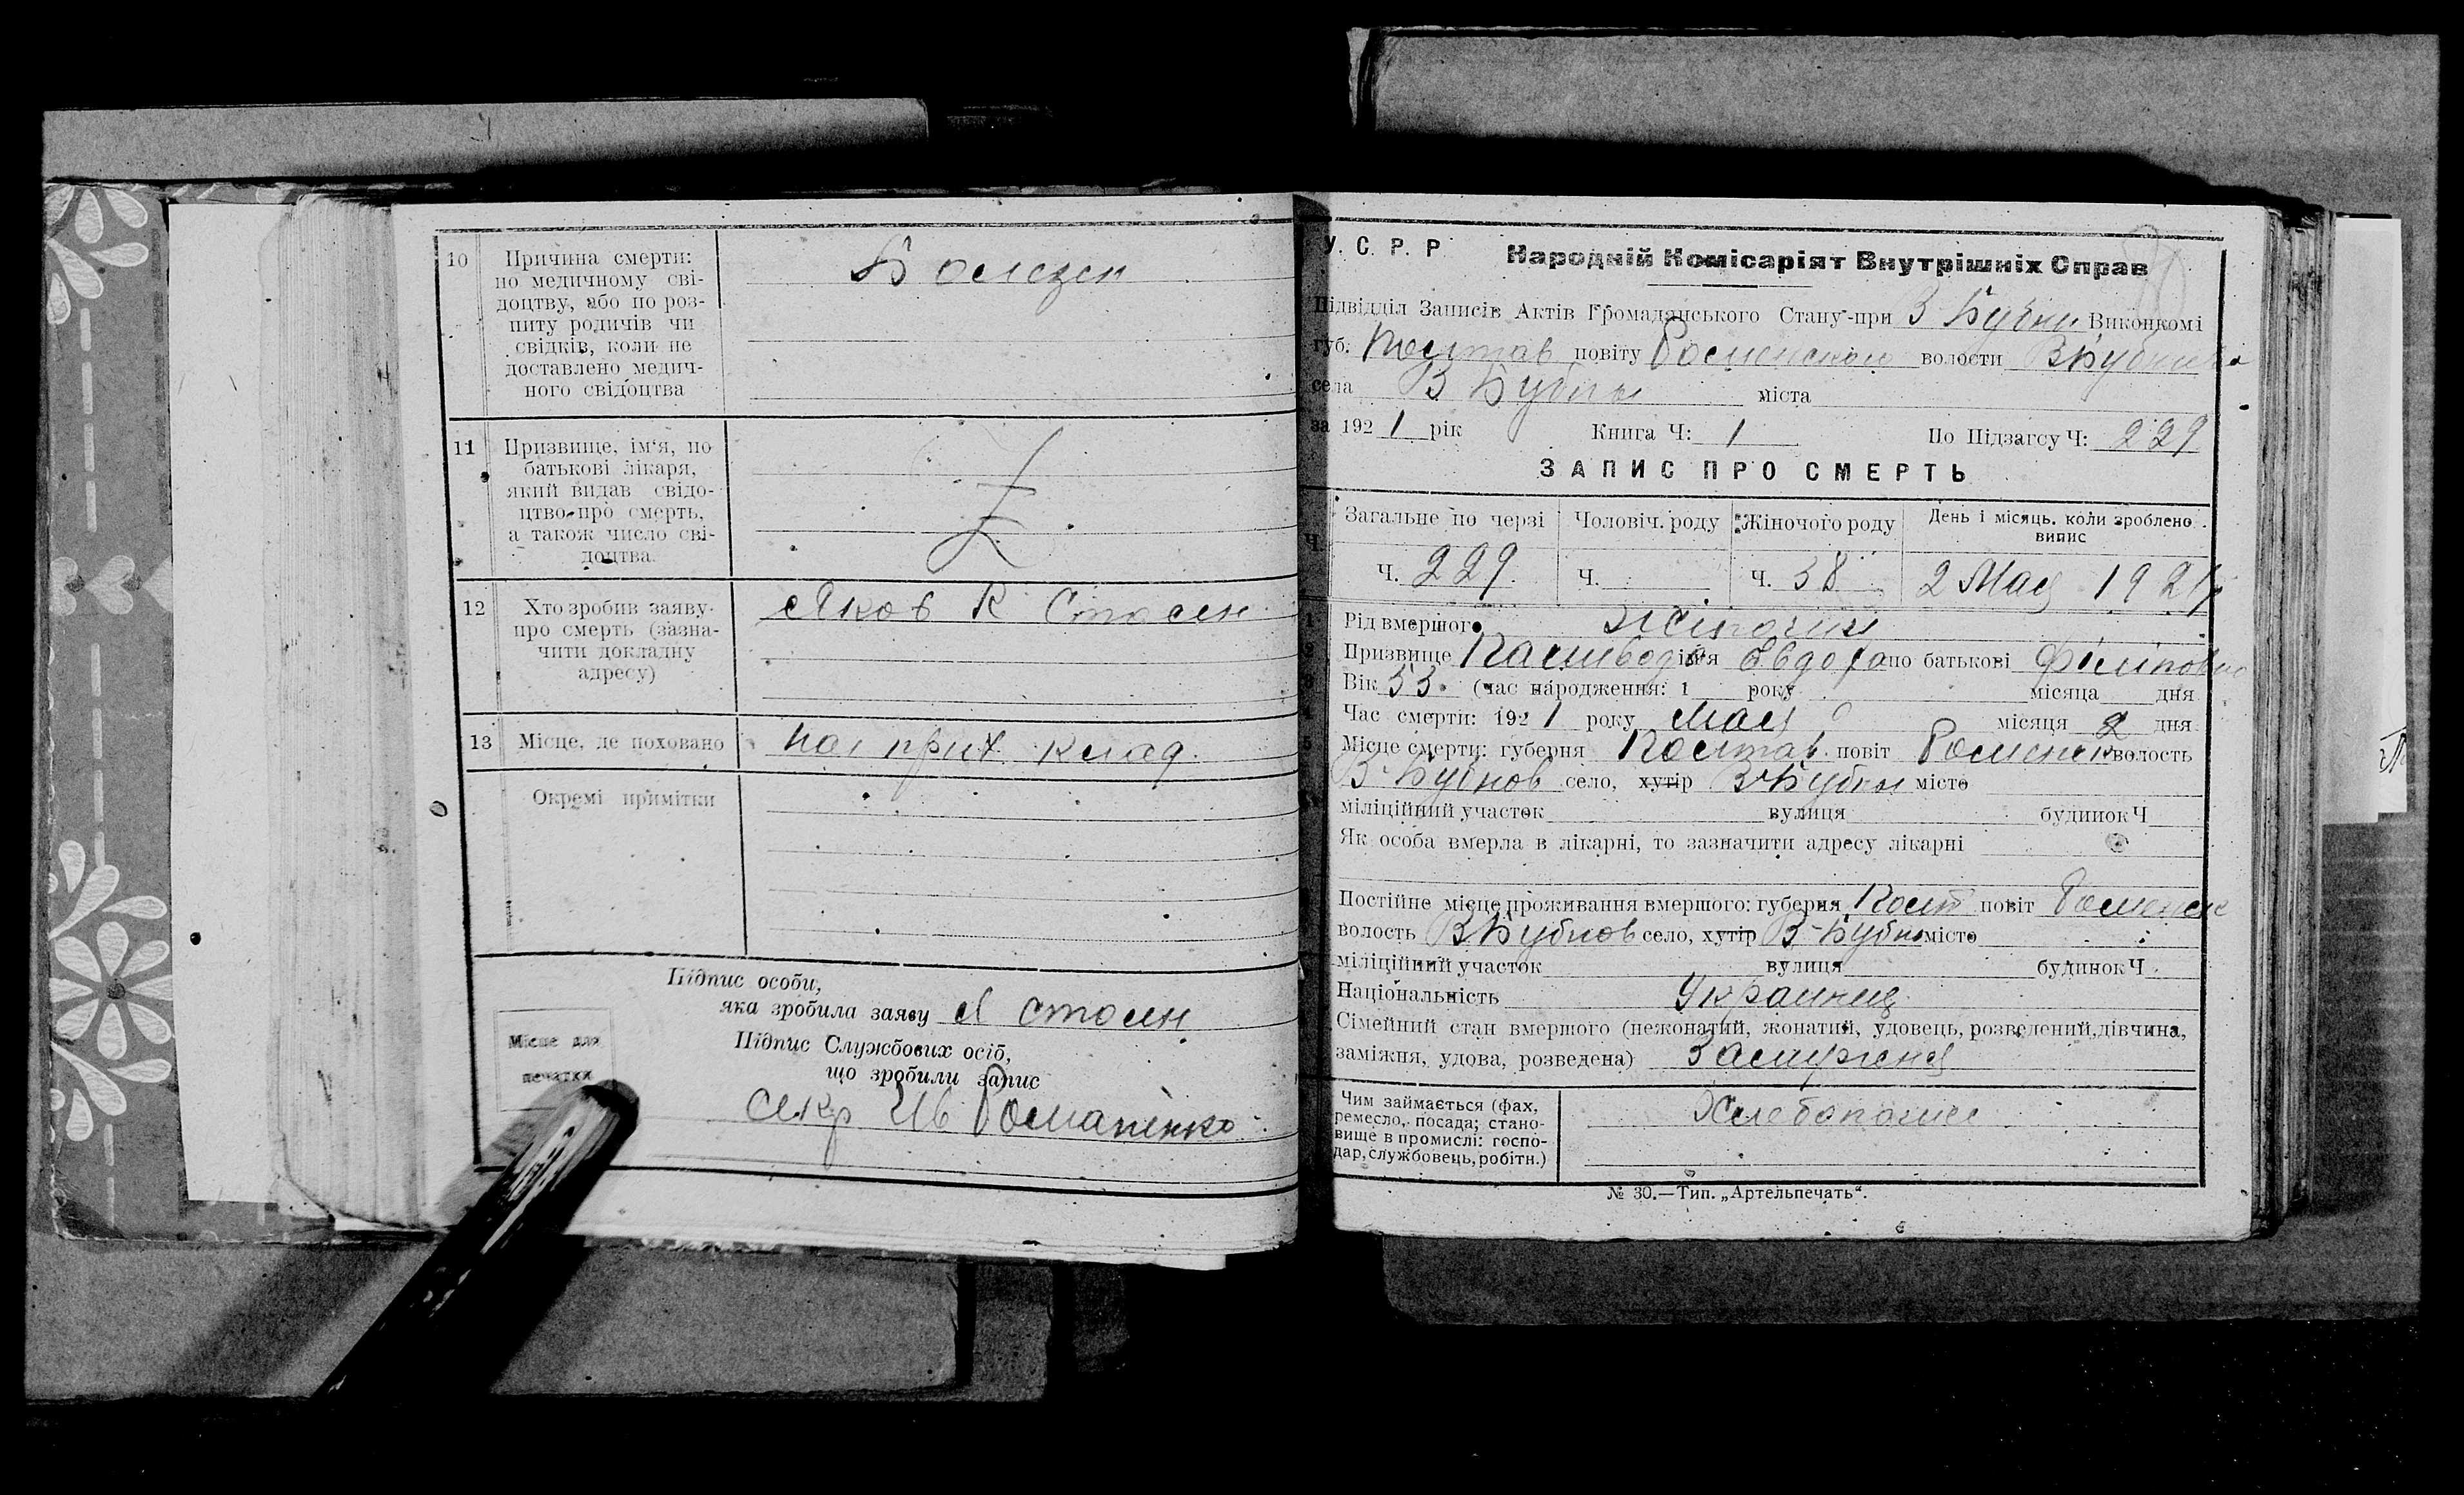 10 Причина смерти: по медичному сві-доцтву, або по роз-питу родичів чи свідків, коли не доставлено медич-ного свідоцтва
Болезн
11 Призвище, ім'я, по батькові лікаря, який видав свідо-цтво про смерть, а також число сві-доцтва.
12 Хто зробив заяву про смерть (зазна-чити докладну адресу)
Яков К Стоян
13 Місце, де поховано
на прих клад.
Окремі примітки
Підпис особи,
яка зробила заяву Я Стоян
Підпис Службових осіб,
що зробили запис
Місце для печатки
Ив Романенко
У. С. Р. Р Народній Комісаріят Внутрішніх Справ
Підвідділ Записів Актів Громадянського Стану при В Бубни Виконкомі
губ. Полтав повіту Роменском волости
села В Бубны міста
за 1921 рік Книга Ч: 1 По Підзагсу Ч: 229
ЗАПИС ПРО СМЕРТЬ
Загальне по черзі Чоловіч. роду Жіночого роду День і місяць, коли зроблено випис
Ч. 229. Ч. Ч. 38 2 Мая 1921
1 Рід вмершого
2 Призвище ім'я по батькові
3 Вік 53. (час народження: 1 року місяца дня
Час смерти: 1921 року Мая місяця 2 дня
5 Місце смерти: губерня Полтав. повіт Роменск волость
В-Бубнов село, хутір В-Бубны місто
міліційний участок вулиця будинок Ч
Як особа вмерла в лікарні, то зазначити адресу лікарні
Постійне місце проживання вмершого: губерня Полт повіт Роменск
волость В Бубнов село, хутір В-Бубны місто
міліційний участок вулиця будинок Ч.
Національність Украинц
Сімейний стан вмершого (нежонатий, жонатий, удовець, розведений, дівчина,
заміжня, удова, розведена) Замужня
Чим займається (фах, ремесло, посада; стано-вище в промислі: госпо-дар, службовець, робітн.)
№ 30.—Тип. „Артельпечать“.